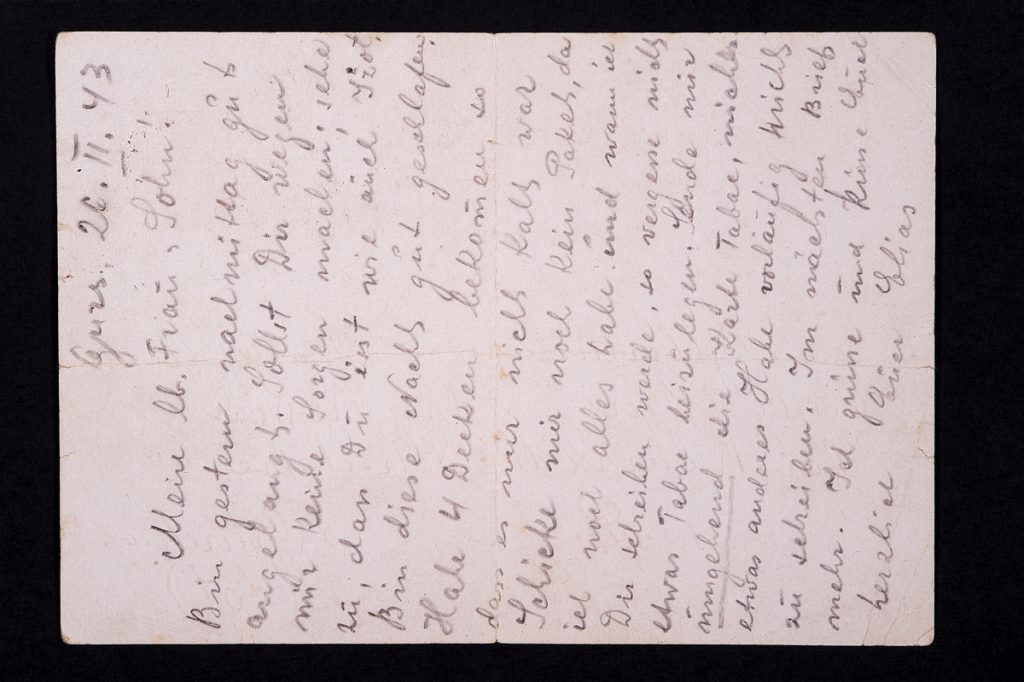 Gurs, 26. II. 43
Meine lb. Frau u. Sohn!
Bin gestern nachmittag gut
angelangt. Sollst Dir wegen
mir keine Sorgen machen, sehe
zu, dass Du isst wie auch Izot.
Bin diese Nacht gut geschlafen.
Habe 4 Decken bekom̄en so
dass es mir nicht kalt war
Schicke mir noch kein Paket, da
ich noch alles habe und wann ich
Dir schreiben werde, so vergesse nicht
etwas Tabac beizulegen. Sende mir
umgehend die Karte Tabac, nichts
etwas anderes Habe vorläufig nichts
zu schreiben. Im nächsten Brief
mehr. Ich grüsse und küsse Euch
herzlich Euer Elias